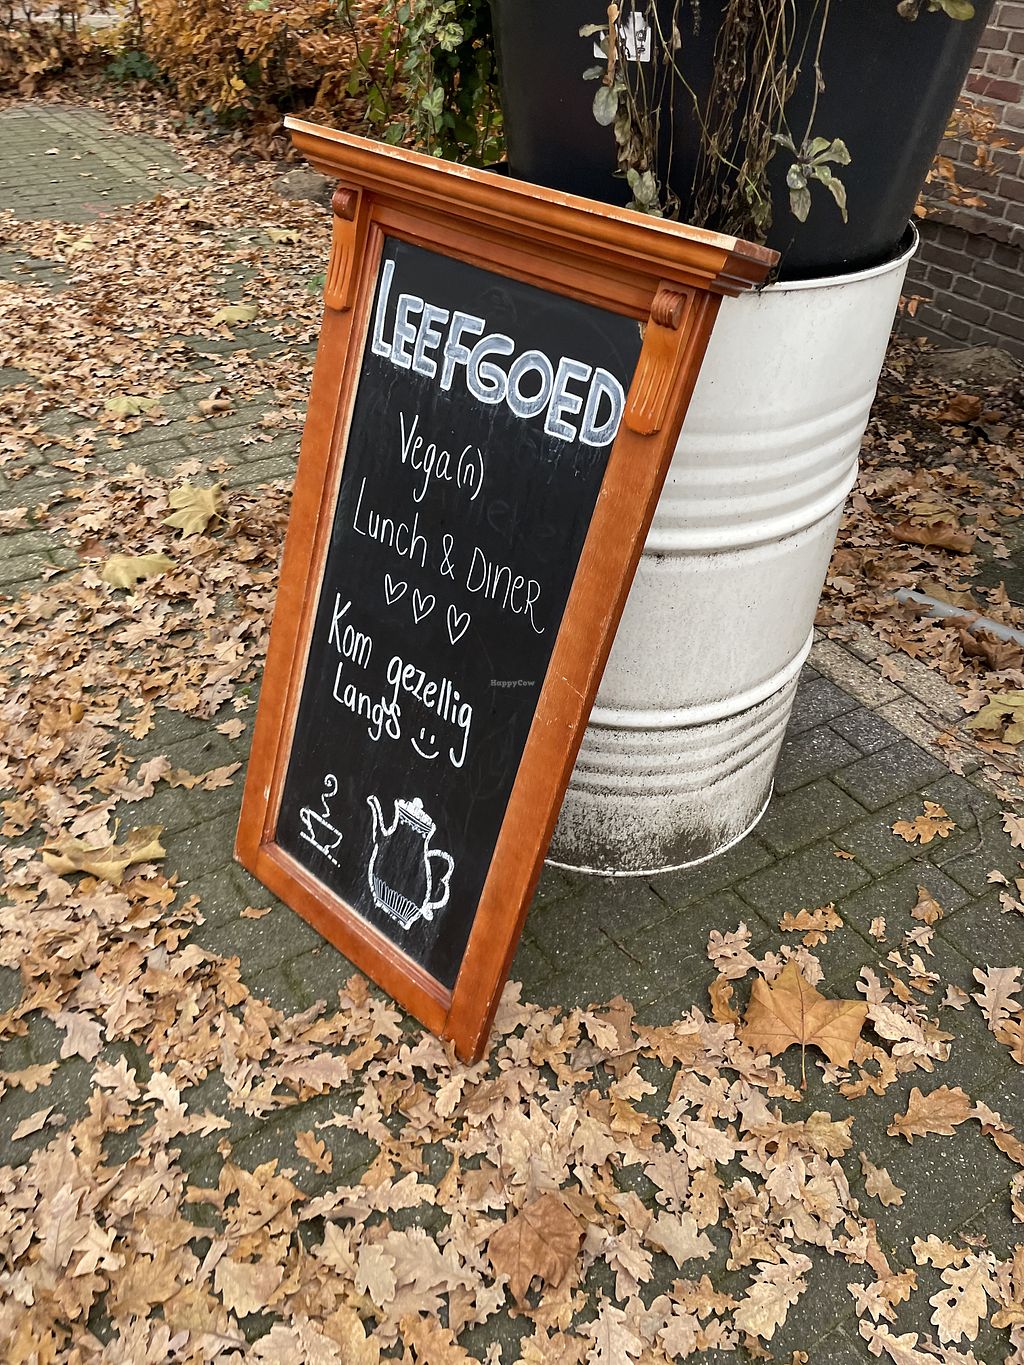 LEEFGOED
Vega(n)
Lunch & DINER
Kom gezellig
Langs
HappyCow